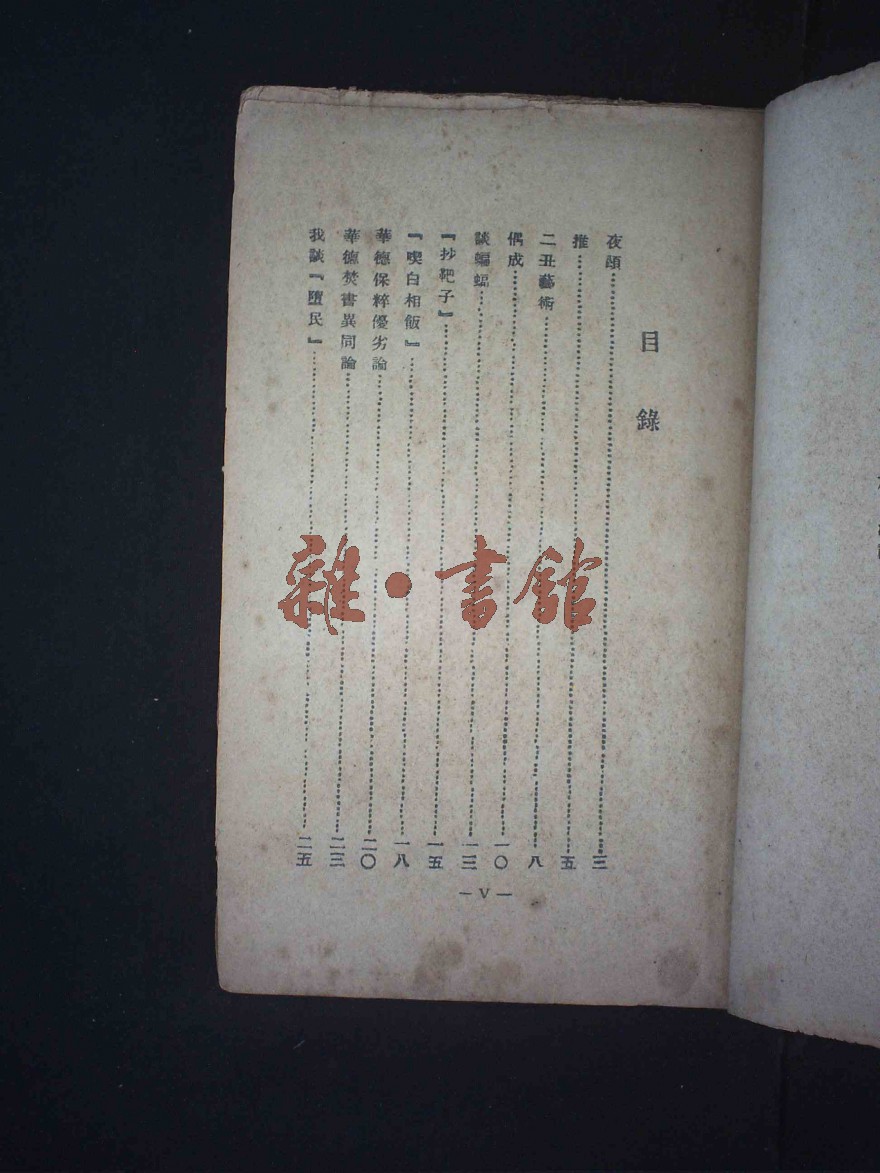 目錄
夜頌……三
推……五
二丑藝術……八
偶成……一〇
談蝙蝠……一三
『抄靶子』……一五
『喫白相飯』……一八
華德保粹優劣論……二〇
華德焚書異同論……二三
我談『墮民』……二五
— V —
雜·書館